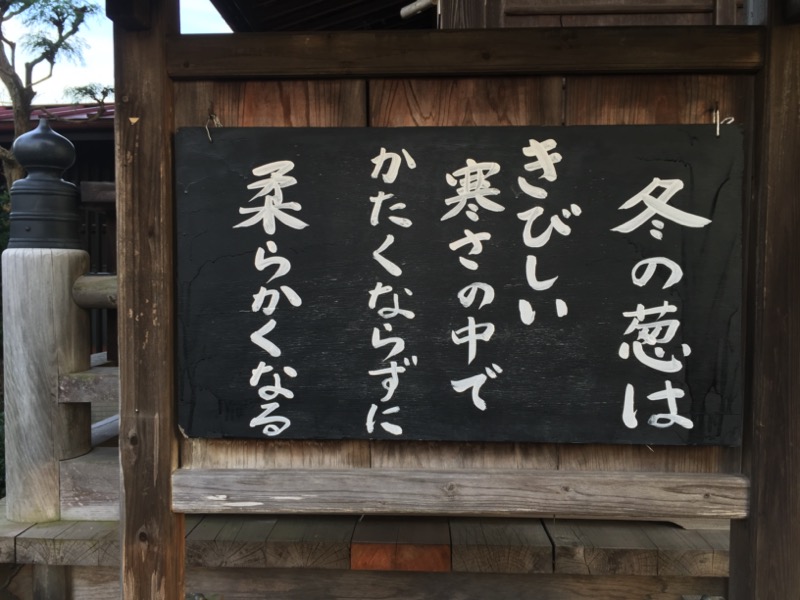 冬の葱は
きびしい
寒さの中で
かたくならずに
柔らかくなる